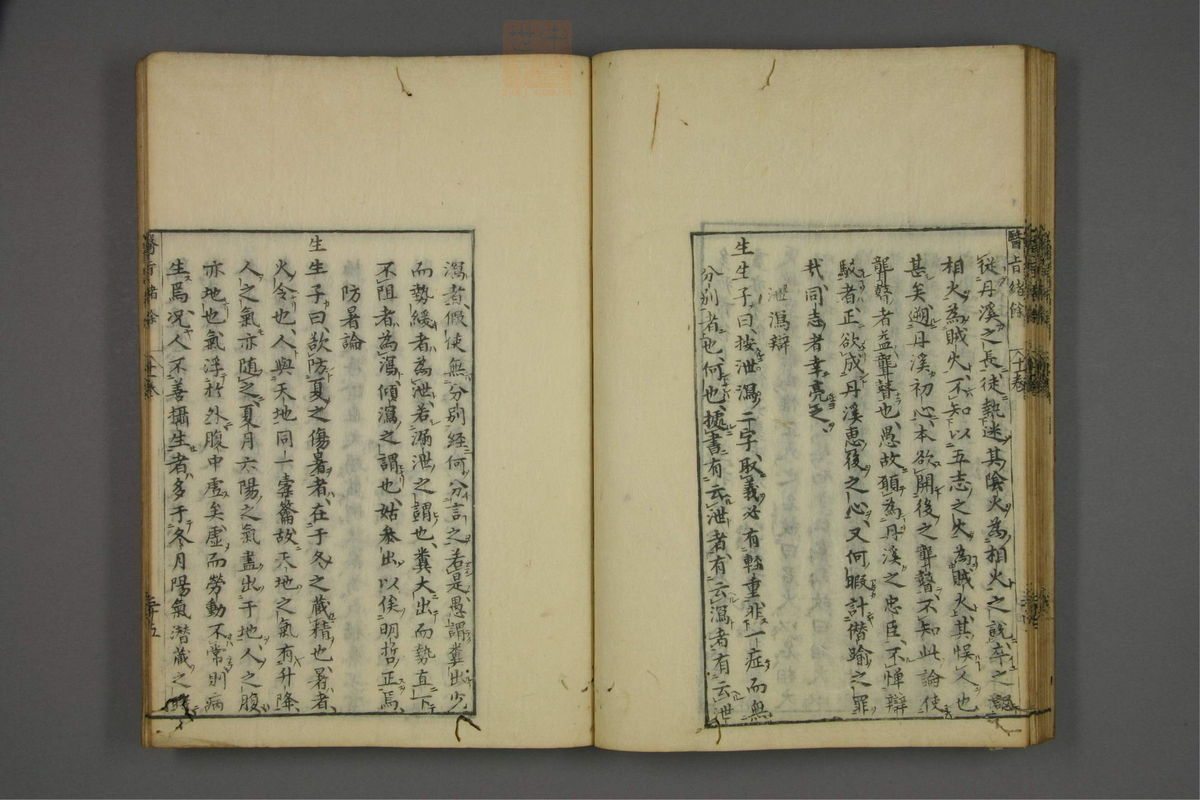 醫旨緒餘
從丹溪之長徒熱迷其陰火為相火之說卒之認
相火為賊火不知以五志之火為賊火其悞人也
甚矣遡丹溪初心本欲開後之聾瞽不知此論使
聾瞽者益聾瞽也愚故願為丹溪之忠臣不憚辯
駁者正欲成丹溪惠後之心又何暇計僭踰之罪
哉同志者幸亮之
泄瀉辯
生生子曰按泄瀉二字取義必有輕重非一症而無
分別者也何也據書有云泄者有云瀉者有云泄
瀉者假使無分別經何分言之若是愚謂糞出少
而勢緩者為泄若漏泄之謂也糞大出而勢直下
不阻者為瀉傾瀉之謂也姑叅出以俟明哲正焉
防暑論
生生子曰故防夏之傷暑者在于冬之藏精也暑者
火令也人與天地同一橐籥故天地之氣有升降
人之氣亦隨之夏月六陽之氣盡出于地人之腹
亦地也氣浮於外腹中虛矣虛而勞動不常則病
生焉况人不善攝生者多于冬月陽氣潛藏之時
醫旨緒餘